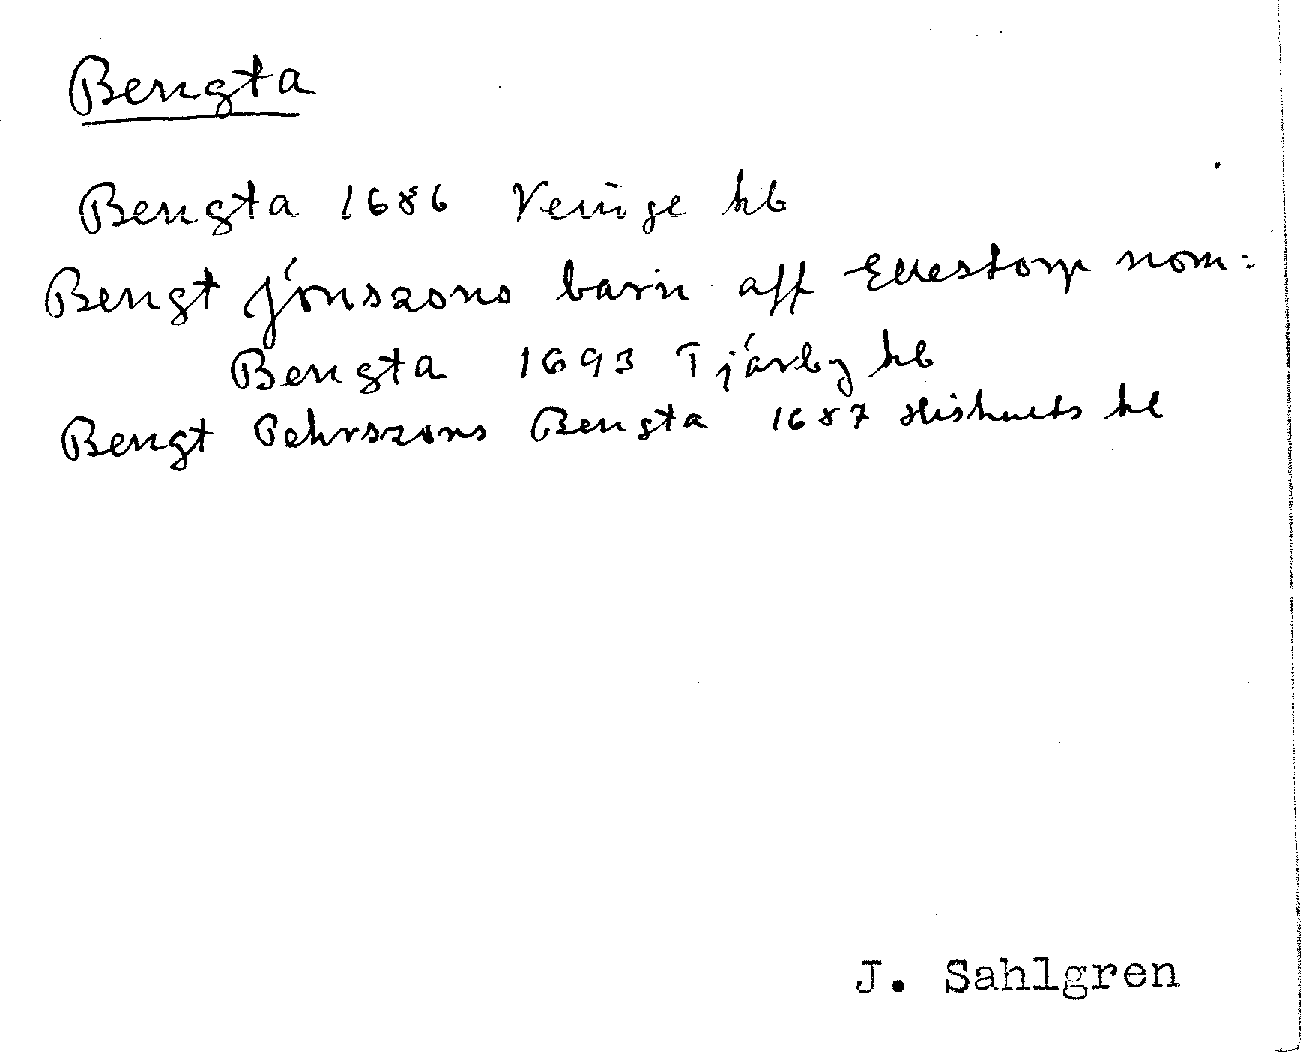 Bengta
Bengta 1686 Veinge kb
Bengt Jönszons barn aff Ellestorp nom:
Bengta 1693 Tjärby kb
Bengt Pehrszons Bengta 1687 Hishults kb
J. Sahlgren